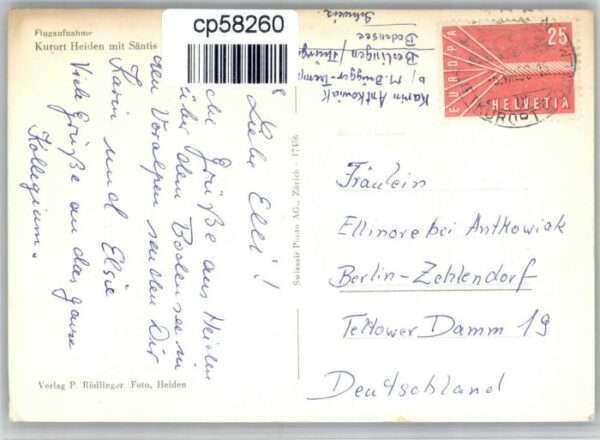 Flugaufnahme
Kurort Heiden mit Säntis
cp58260
Liebe Elli!
che Grüße aus Heiden
über dem Bodensee in
den Voralpen senden Dir
Karin und Elsie
Viele Grüße an das ganze
Kollegium.
Karin Antkowiak
b/ M. Brugger
Berlingen /
Bodensee
Schweiz
EUROPA
25
HELVETIA
Swissair Photo AG., Zürich
Fräulein
Ellinore bei Antkowiak
Berlin-Zehlendorf
Teltower Damm 19
Deutschland
Verlag P. Rödlinger Foto, Heiden